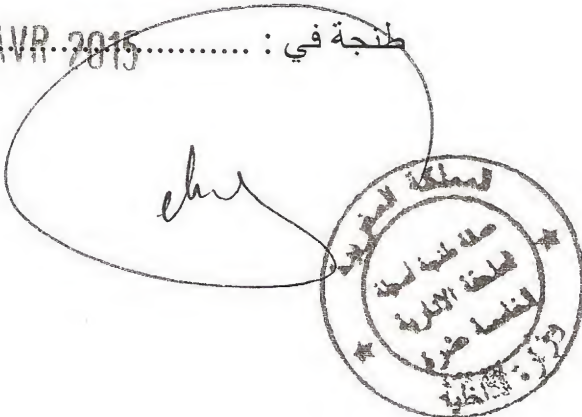 طنجة في : .................... AVR 2015
المملكة المغربية
عمالة طنجة أصيلة
الملحقة الادارية
الخامسة عشرة
وزارة الداخلية